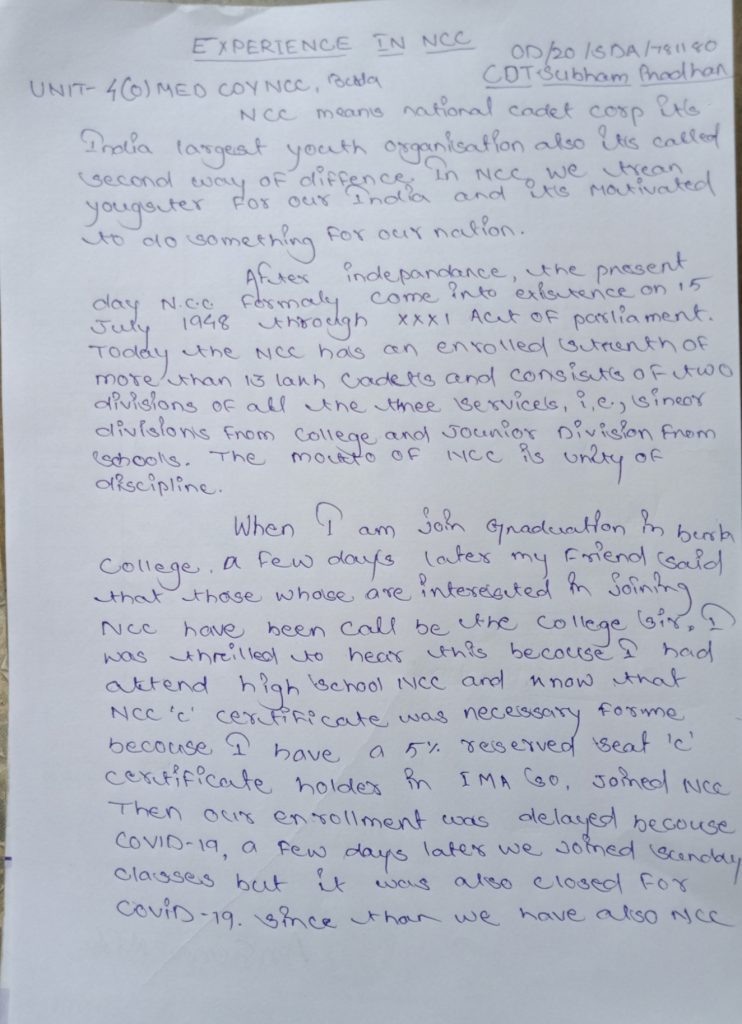 EXPERIENCE IN NCC
OD/20/SDA/781180
UNIT- 4(O) MED COY NCC, Burla
CDT Subham Pradhan
NCC means national cadet corp it's
India largest youth organisation also it's called
second way of diffence. In NCC, we trean
yougster for our India and its Motivated
to do something for our nation.
After indepandance, the present
day N.C.C formaly come into existence on 15
July 1948 through XXXI Act of parliament.
Today the NCC has an enrolled strenth of
more than 13 lakh Cadets and consists of two
divisions of all the thee services, i,e., sineor
divisions from College and Jounior Division from
schools. The motto of NCC is unity of
discipline.
When I am join Graduation in
College. a few days later my friend said
that those whose are interested in joining
NCC have been call be the college sir. I
was threilled to hear this becouse I had
attend high school NCC and know that
NCC 'c' certificate was necessary forme
becouse I have a 5% reserved seat 'c'
certificate holder in IMA so, Joined NCC
Then our enrollment was delayed becouse
COVID-19, a few days later we Joined sunday
classes but it was also closed for
COVID-19. since than we have also NCC